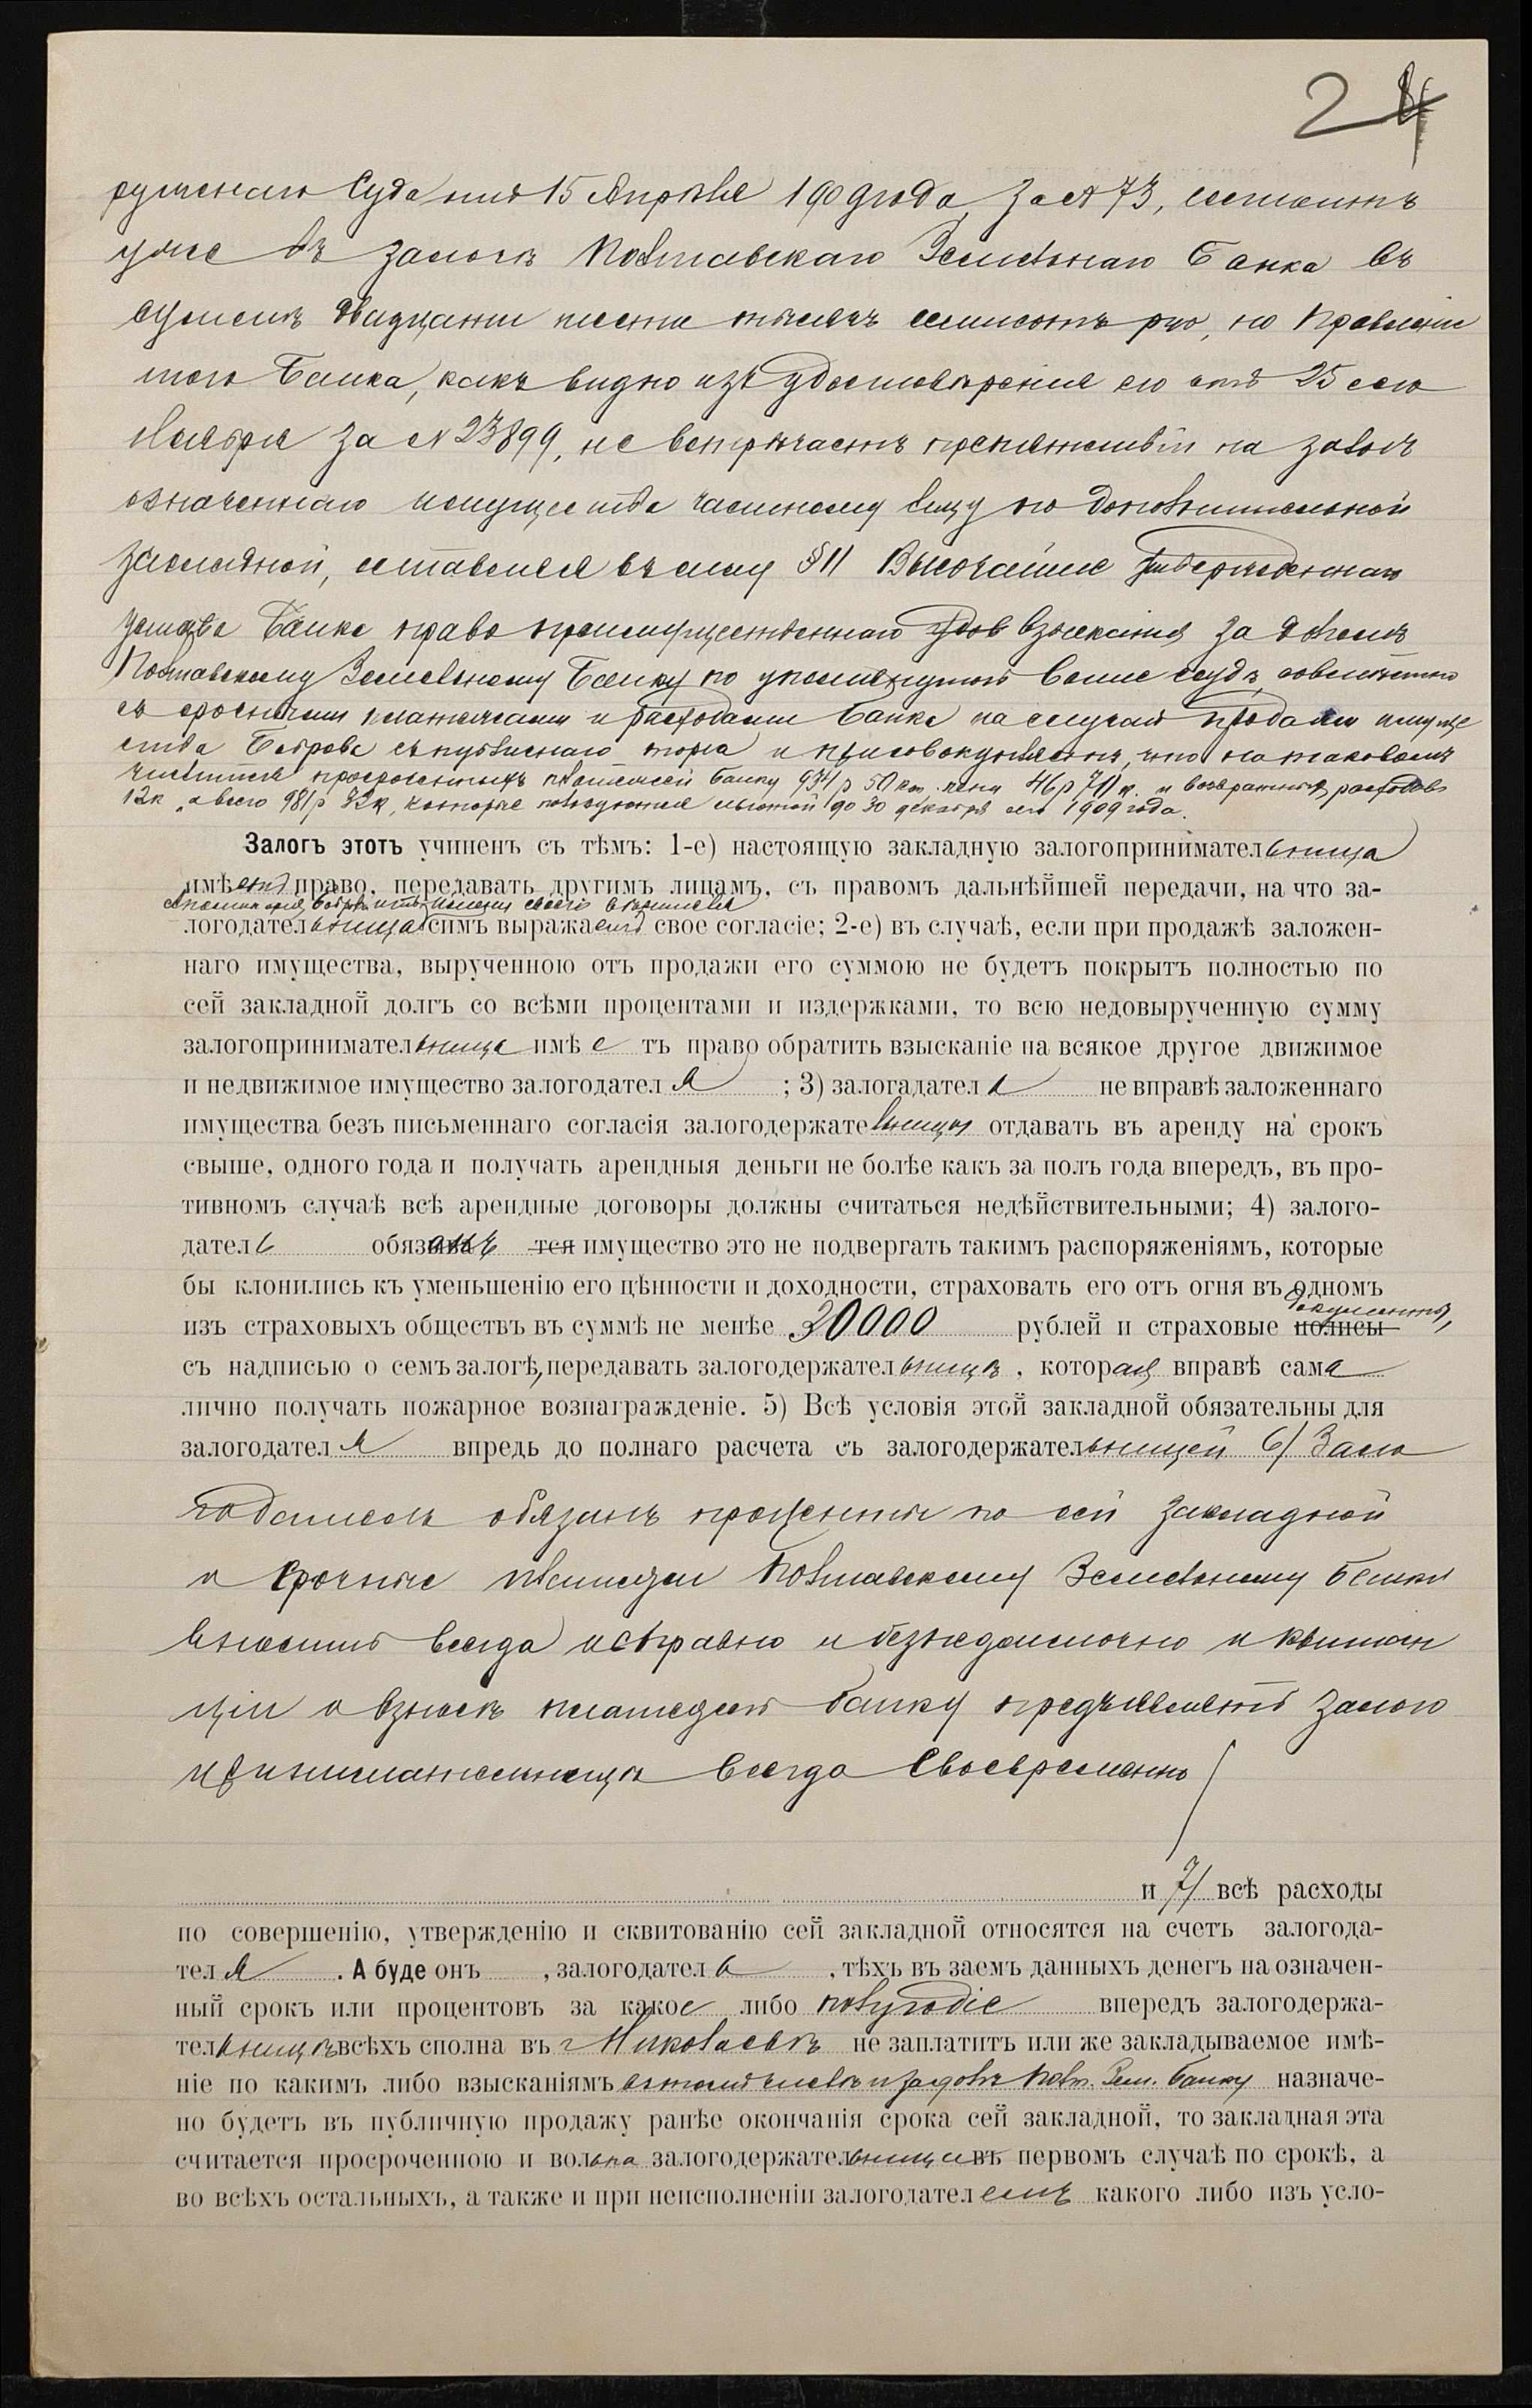 2
ружнаго Суда отъ 15 Апрѣля 1909 года за № 73, состоитъ
уже въ залогѣ Полтавскаго Земельнаго Банка въ
суммѣ двадцати шести тысячъ семисотъ руб, но Правленіе
того Банка, какъ видно изъ удостовѣренія его отъ 25 сего
Ноября за № 23899, не встрѣчаетъ препятствій на залогъ
означеннаго имущества частному лицу по дополнительной
закладной, оставляя въ силу § 11 Высочайше утвержденнаго
устава Банка право преимущественнаго взысканія за долгъ
Полтавскому Земельному Банку по упомянутой выше ссудѣ, совмѣстно
съ срочными платежами и расходами Банка на случай продажи имуще
ства Боброва съ публичнаго торга и присовокупляетъ, что на таковомъ
числится просроченныхъ платежей банку 934 р 50 коп. пени 46 р 70 к. и возвратныхъ расходовъ
12 к, а всего 981 р 32 к, которые пользуются льготой до 30 декабря сего 1909 года.
Залогъ этотъ учиненъ съ тѣмъ: 1-е) настоящую закладную залогопринимательница
имѣетъ право, передавать другимъ лицамъ, съ правомъ дальнѣйшей передачи, на что за-
логодательница симъ выражаетъ свое согласіе; 2-е) въ случаѣ, если при продажѣ заложен-
наго имущества, вырученною отъ продажи его суммою не будетъ покрытъ полностью по
сей закладной долгъ со всѣми процентами и издержками, то всю недовырученную сумму
залогопринимательница имѣетъ право обратить взысканіе на всякое другое движимое
и недвижимое имущество залогодателя ; 3) залогадатель не вправѣ заложеннаго
имущества безъ письменнаго согласія залогодержательницы отдавать въ аренду на срокъ
свыше, одного года и получать арендныя деньги не болѣе какъ за полъ года впередъ, въ про-
тивномъ случаѣ всѣ арендные договоры должны считаться недѣйствительными; 4) залого-
датель обязанъ тся имущество это не подвергать такимъ распоряженіямъ, которые
бы клонились къ уменьшенію его цѣнности и доходности, страховать его отъ огня въ одномъ
документы,
изъ страховыхъ обществъ въ суммѣ не менѣе 30000 рублей и страховые полисы
съ надписью о семъ залогѣ, передавать залогодержательницѣ, которая вправѣ сама
лично получать пожарное вознагражденіе. 5) Всѣ условія этой закладной обязательны для
залогодателя впредь до полнаго расчета съ залогодержательницей 6/ Зало
годатель обязанъ проценты по сей закладной
и срочные платежи Полтавскому Земельному Банку
вносить всегда исправно и бездоимочно и квитан
ціи о взносѣ платежей банку предъявлять залого
принимательницѣ всегда своевременно
и 7/ всѣ расходы
по совершенію, утвержденію и сквитованію сей закладной относятся на счетъ залогода-
теля . А буде онъ , залогодатель , тѣхъ въ заемъ данныхъ денегъ на означен-
ный срокъ или процентовъ за какое либо полугодіе впередъ залогодержа-
тельницѣ всѣхъ сполна въ г Николаевѣ не заплатитъ или же закладываемое имѣ-
ніе по какимъ либо взысканіямъ в томъ числѣ и за долгъ Полт. Зем. банку назначе-
но будетъ въ публичную продажу ранѣе окончанія срока сей закладной, то закладная эта
считается просроченною и вольна залогодержательница въ первомъ случаѣ по срокѣ, а
во всѣхъ остальныхъ, а также и при неисполненіи залогодателемъ какого либо изъ усло-